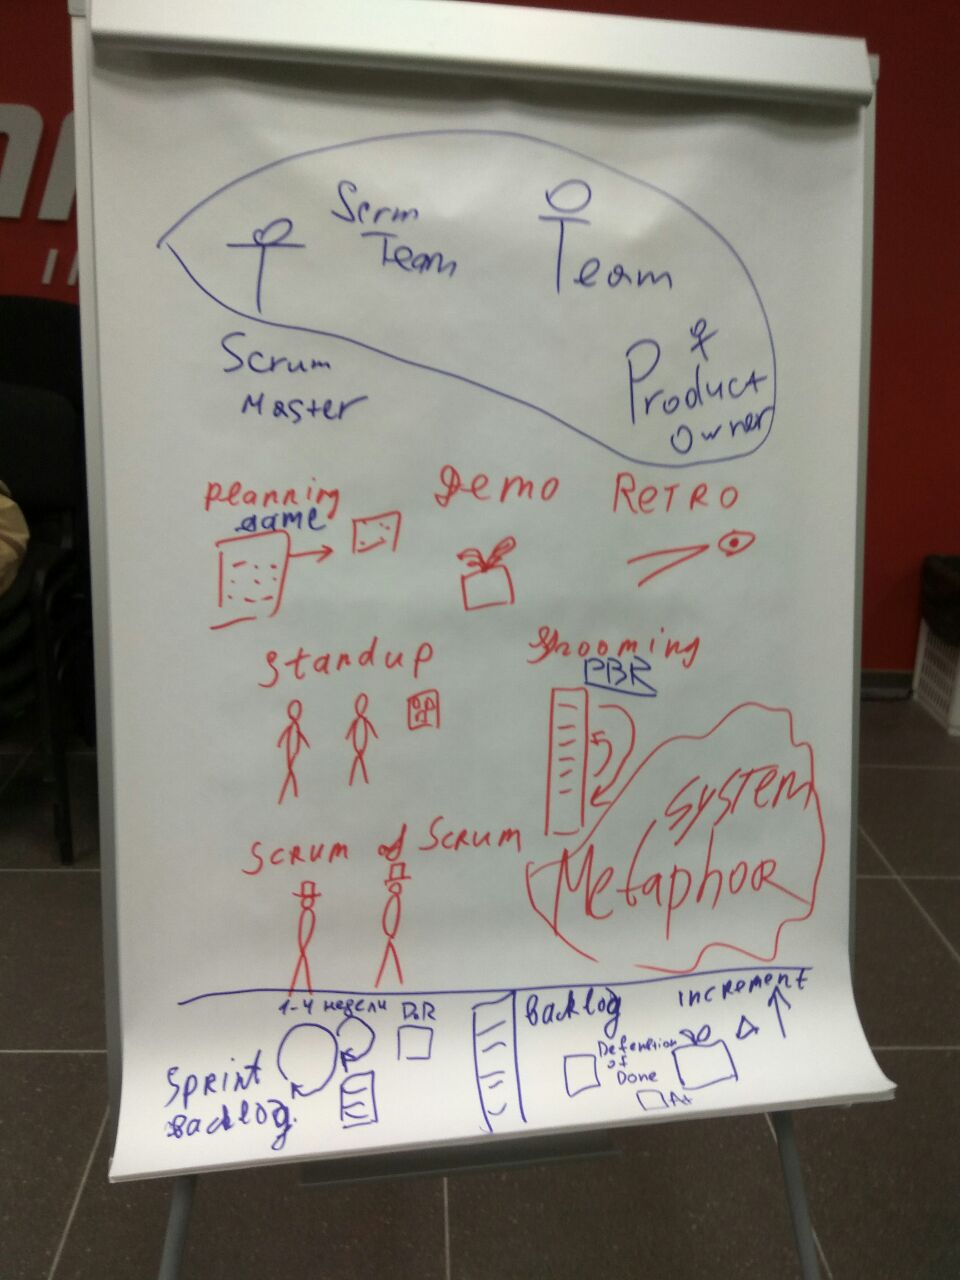 Scrm
Team
Team
Scrum
Master
Product
Owner
planning
game
Demo
RETRO
Standup
grooming
PBR
System
Metaphor
Scrum of Scrum
1-4 недели
DoR
Backlog
increment
Sprint
Backlog.
Defenition
of
Done